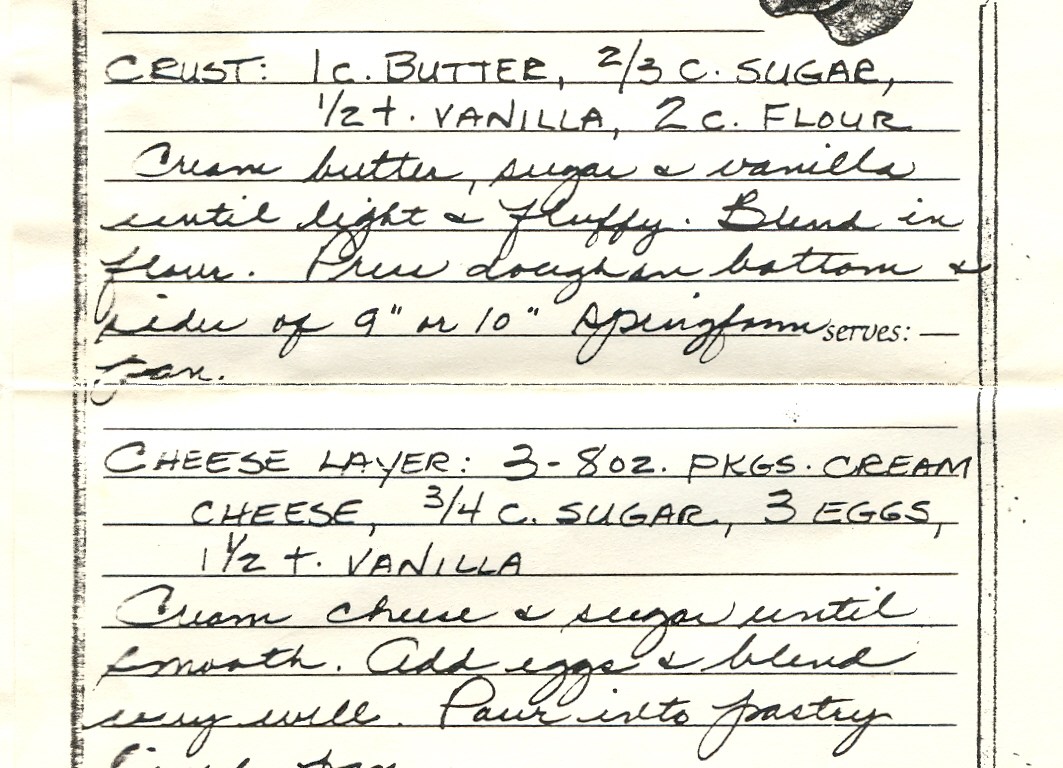 CRUST: 1 c. BUTTER, 2/3 c. SUGAR,
1/2 t. VANILLA, 2 c. FLOUR
Cream butter, sugar & vanilla
until light & fluffy. Blend in
flour. Press dough on bottom &
sides of 9" or 10" springform serves:
pan.
CHEESE LAYER: 3-8 oz. PKGS. CREAM
CHEESE, 3/4 c. SUGAR, 3 EGGS,
1 1/2 t. VANILLA
Cream cheese & sugar until
smooth. Add eggs & blend
very well. Pour into pastry